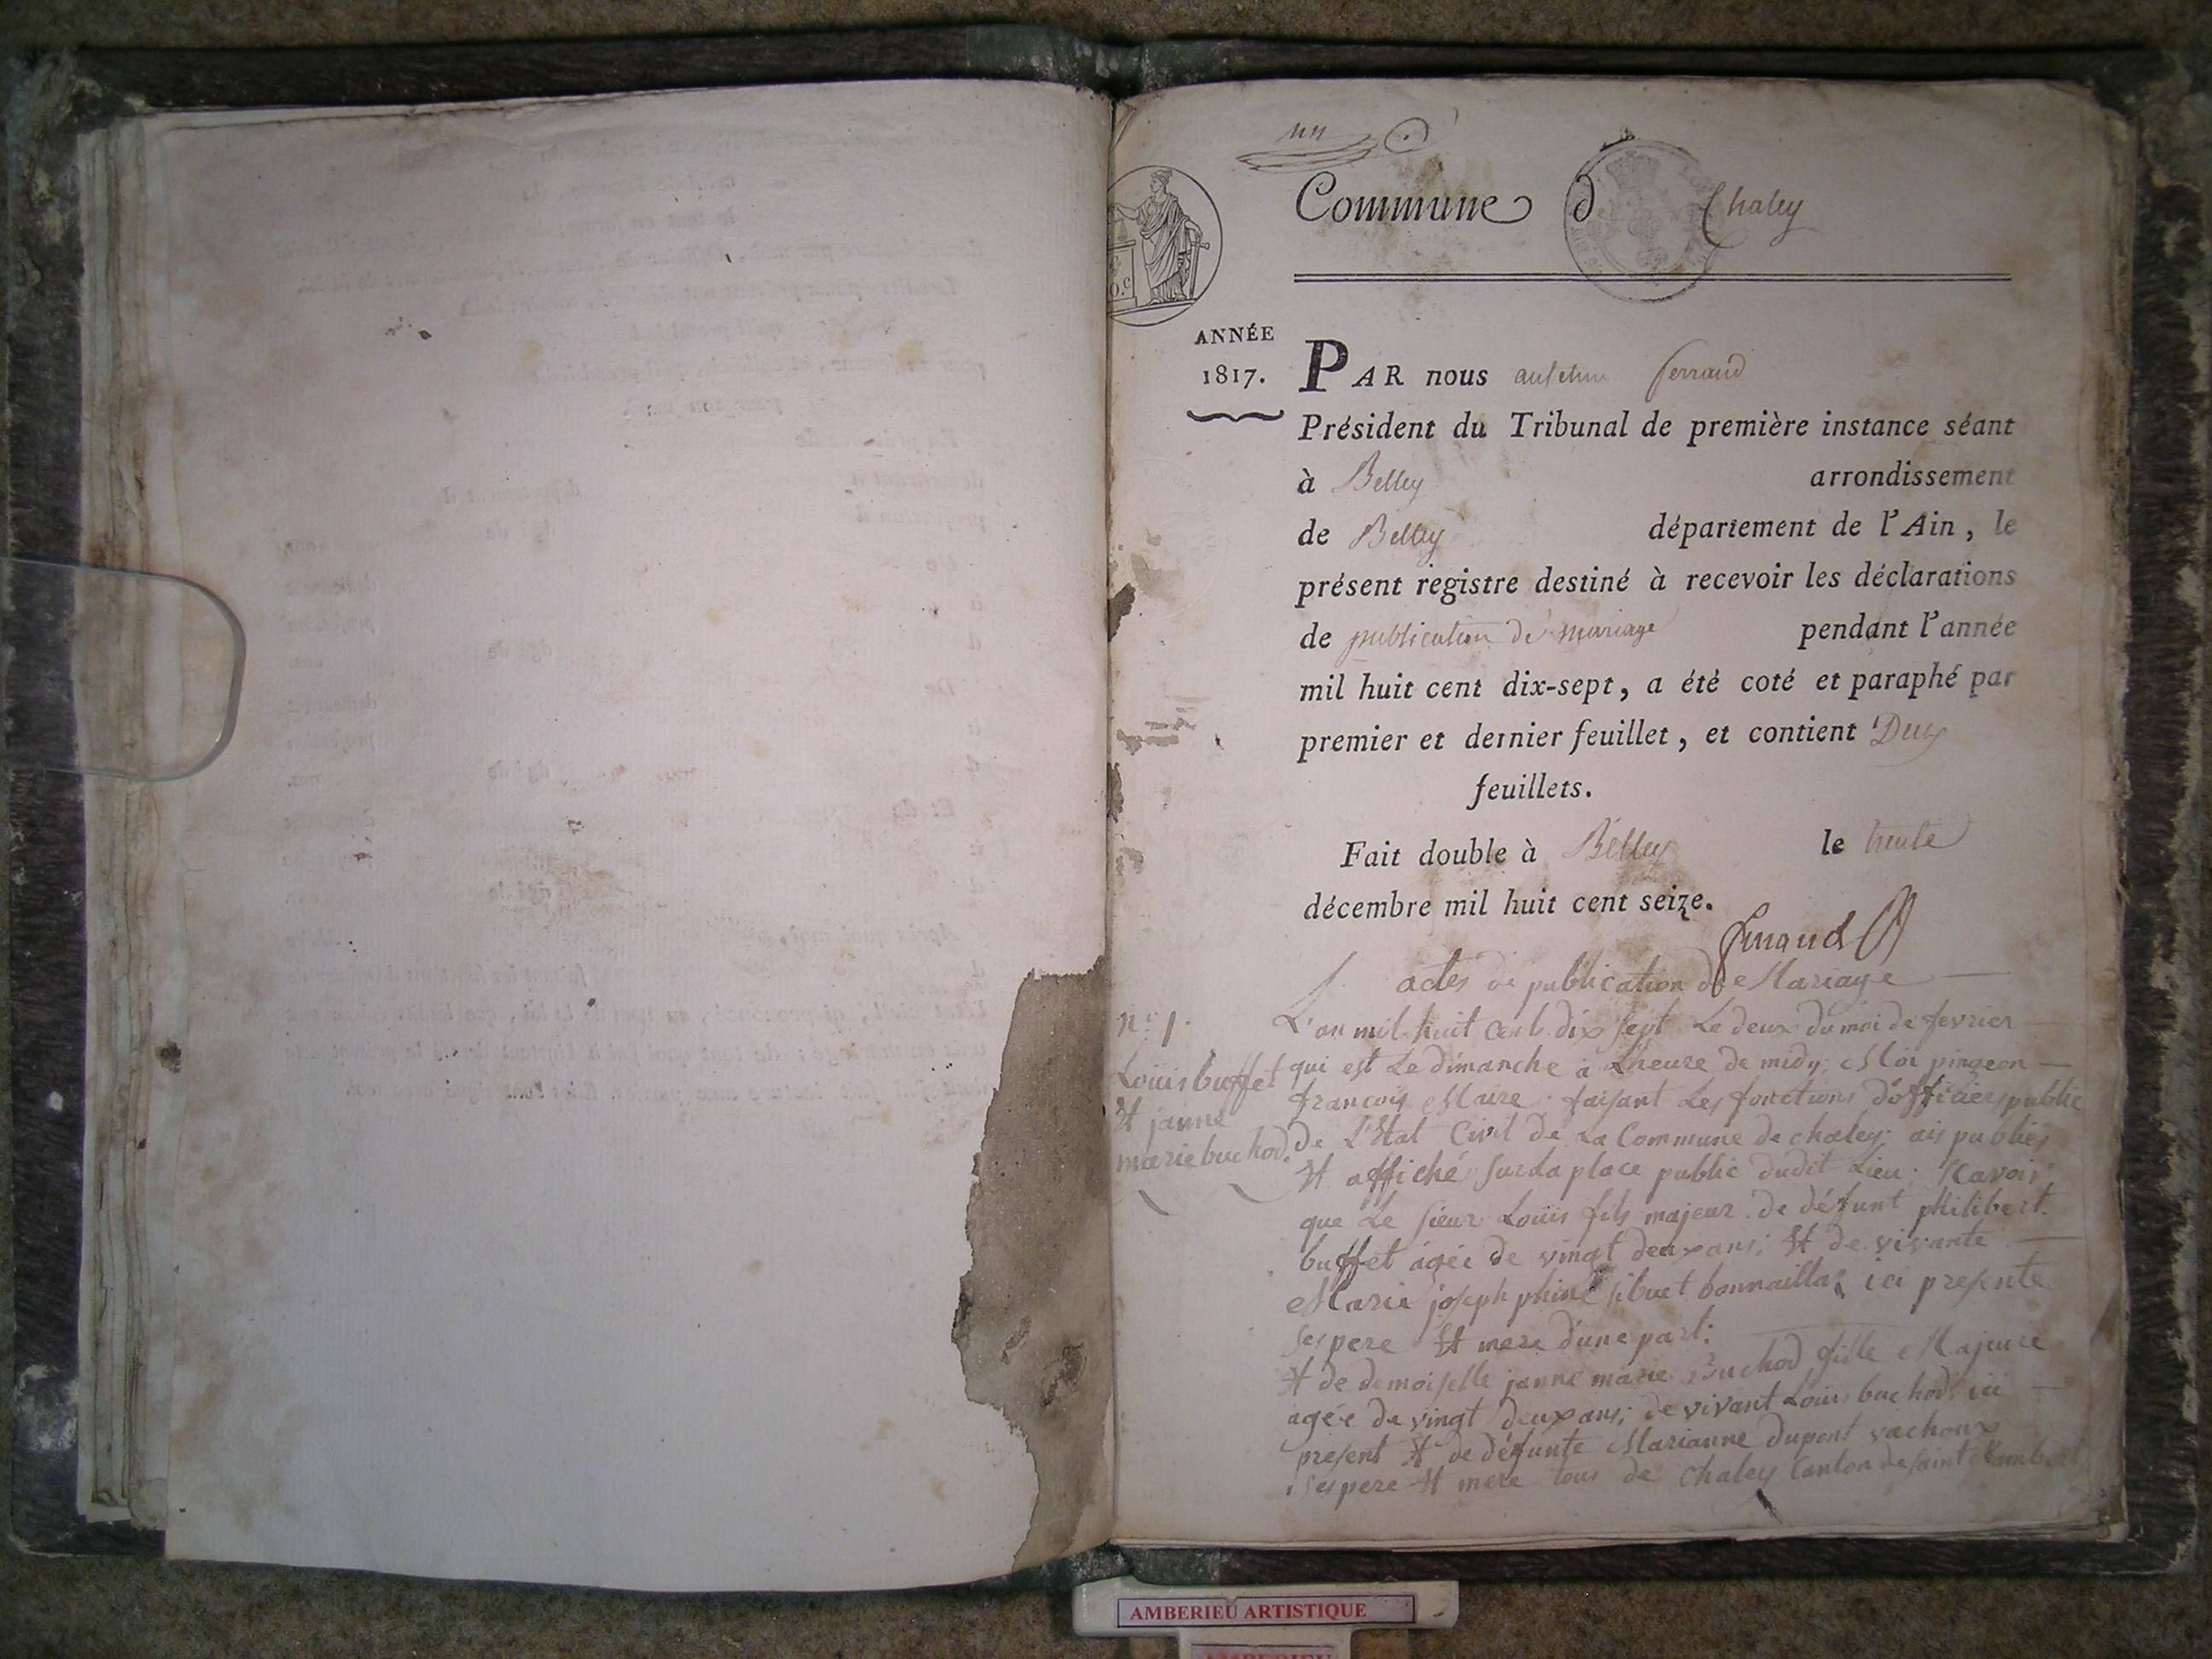 un
Commune d Chaley
ANNÉE
1817.
PAR nous anselme ferraud
Président du Tribunal de première instance séant
à Belley arrondissement
de Belley département de l'Ain, le
présent registre destiné à recevoir les déclarations
de publication de mariage pendant l'année
mil huit cent dix-sept, a été coté et paraphé par
premier et dernier feuillet, et contient Deux
feuillets.
Fait double à Belley le trente
décembre mil huit cent seize.
actes de publication de Mariage
n.° 1.
Louis buffet
Et janne
marie buchod.
L'an mil huit cent dix sept Le deux du moi de fevrier
qui est Le dimanche à Lheure de midy; Moi pingeon
francois Maire faisant Les fonctions d'officier public
de L'Etat Civil de La Commune de chaley; ais publiés
Et affiché Sur La place public dudit Lieu; Savoir
que Le sieur Louis fils majeur de défunt philibert
buffet agée de vingt deux ans; Et de vivante
Marie joseph phine sibuet bonnailla; ici presente
Ses pere Et mere d'une part:
Et de demoiselle janne marie Buchod fille Majeure
agée de vingt deux ans; de vivant Louis buchod ici
present Et de défunte Marianne dupont vachoux
Ses pere Et mere tous de Chaley Canton de saint Rambert
AMBERIEU ARTISTIQUE